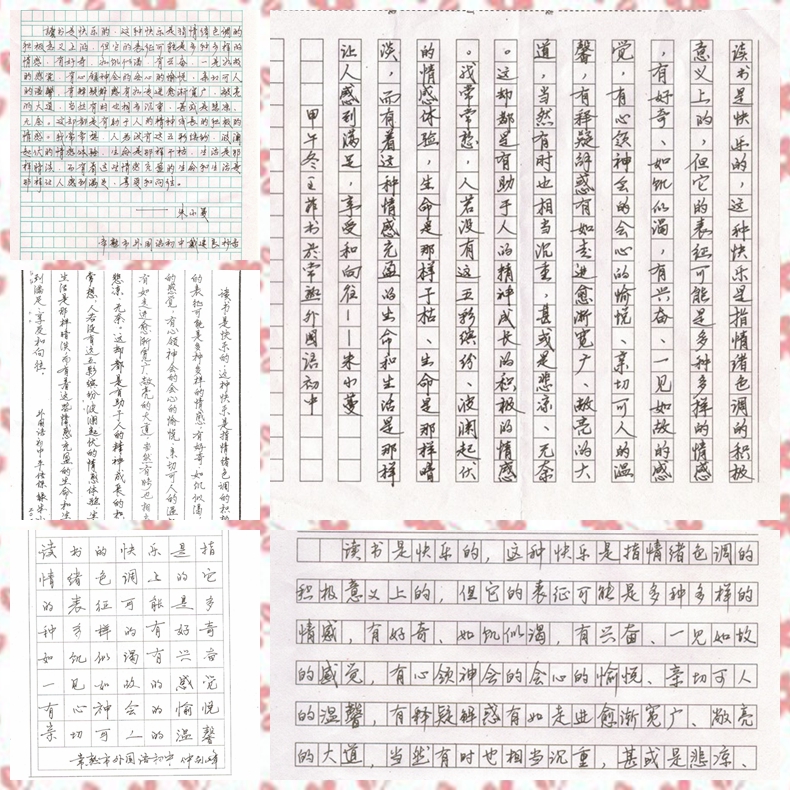 读书是快乐的，这种快乐是指情绪色调的
积极意义上的，但它的表征可能是多种多样的
情感，有好奇、如饥似渴，有兴奋、一见如故
的感觉，有心领神会的会心的愉悦、亲切可人
的温馨，有释疑解惑有如走进愈渐宽广、敞亮
的大道，当然有时也相当沉重，甚或是悲凉、
无奈。这却都是有助于人的精神成长的积极的
情感。我常常想，人若没有这五彩缤纷、波澜
起伏的情感体验，生命是那样干枯、生活是那
样暗淡，而有着这种情感充盈的生命和生活是
那样让人感到满足、享受和向往。
——朱小蔓
常熟市外国语初中戴建良书
读书是快乐的，这种快乐是指情绪色调的积极
意义上的，但它的表征可能是多种多样的情感
，有好奇、如饥似渴，有兴奋、一见如故的感
觉，有心领神会的会心的愉悦、亲切可人的温
馨，有释疑解惑有如走进愈渐宽广、敞亮的大
道，当然有时也相当沉重，甚或是悲凉、无奈
。这却都是有助于人的精神成长的积极的情感
。我常常想，人若没有这五彩缤纷、波澜起伏
的情感体验，生命是那样干枯、生命是那样暗
淡，而有着这种情感充盈的生命和生活是那样
让人感到满足，享受和向往——朱小蔓
甲午冬王菲书於常熟外国语初中
读书是快乐的，这种快乐是指情绪色调的积
的表征可能是多种多样的情感，有好奇、如饥似渴，
的感觉，有心领神会的会心的愉悦、亲切可人的温
有如走进愈渐宽广、敞亮的大道，当然有时也相
悲凉、无奈。这却都是有助于人的精神成长的积
常想，人若没有这五彩缤纷、波澜起伏的情感体验，生
生活是那样暗淡，而有着这些情感充盈的生命和生
到满足、享受和向往。
外国语初中
读书的快乐是指
情绪色调上的它
的表征可能是多
种多样的有好奇
如饥似渴有兴奋
一见如故的感觉
有心神会的愉悦
亲切可人的温馨
常熟市外国语初中，仲剑峰
读书是快乐的，这种快乐是指情绪色调的
积极意义上的，但它的表征可能是多种多样的
情感，有好奇、如饥似渴，有兴奋、一见如故
的感觉，有心领神会的会心的愉悦、亲切可人
的温馨，有释疑解惑有如走进愈渐宽广、敞亮
的大道，当然有时也相当沉重，甚或是悲凉、